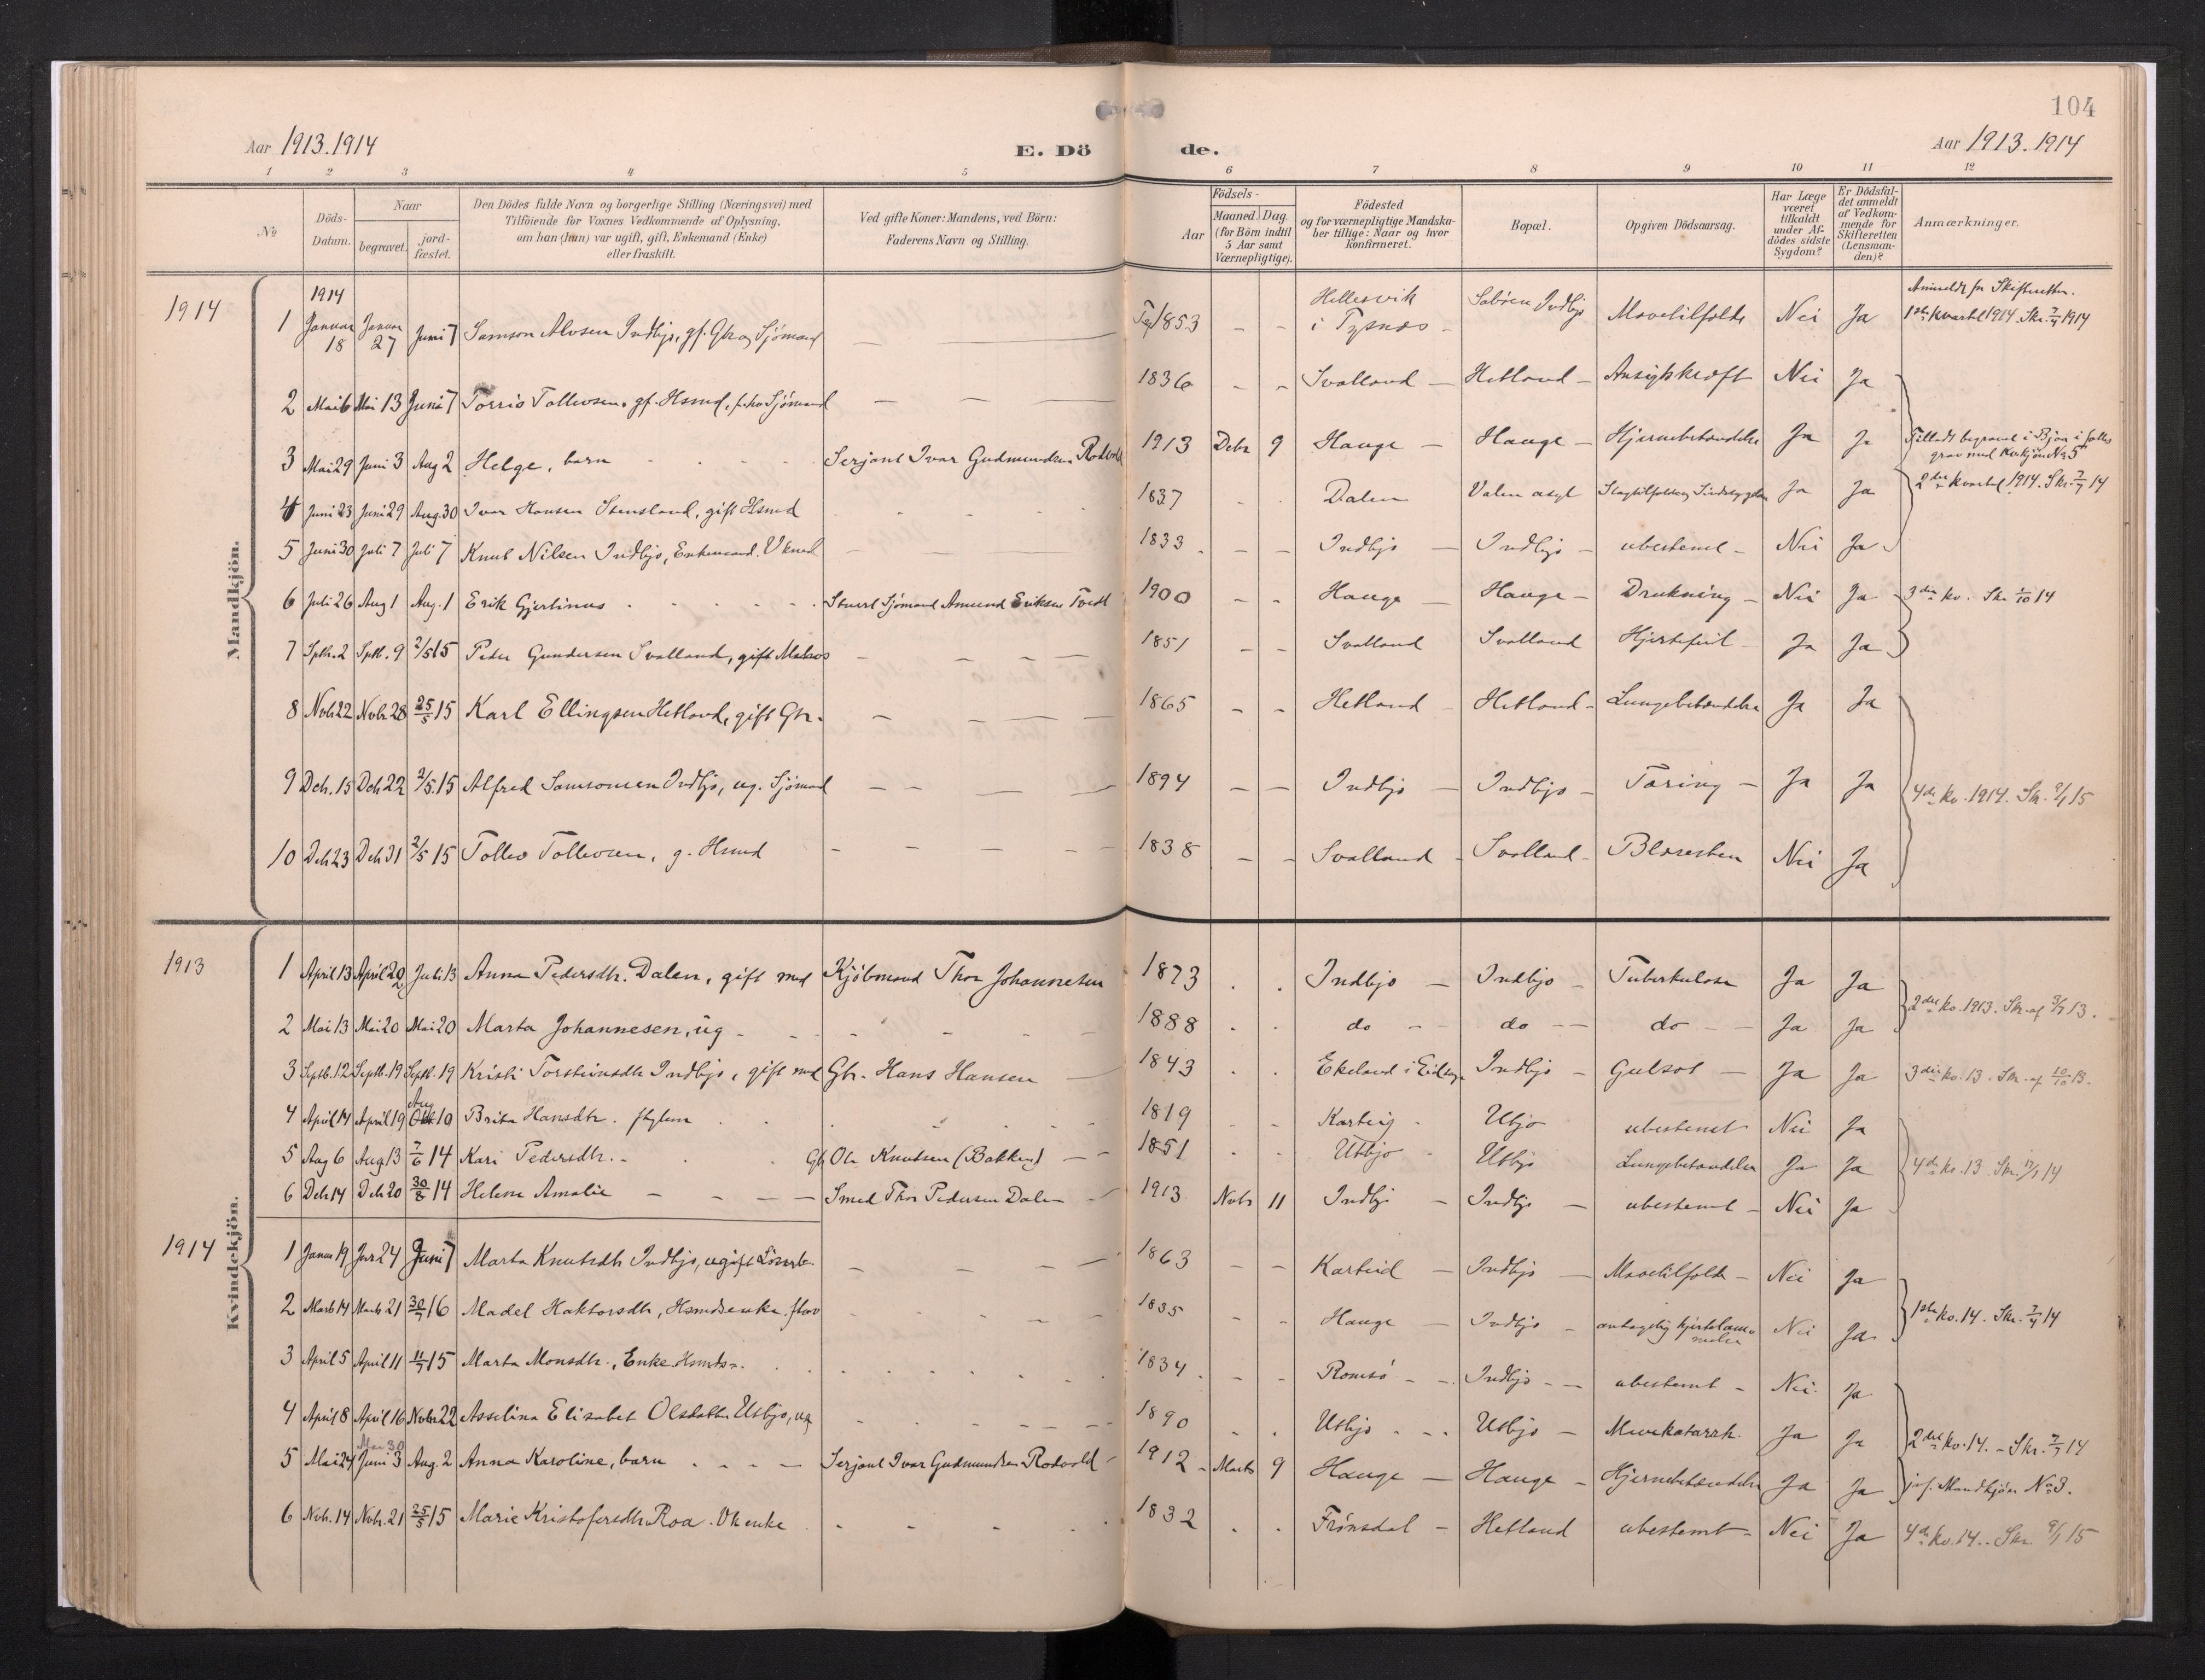 104
Aar 1913.1914 E. Dö de. Aar 1913.1914
1 2 3 4 5 6 7 8 9 10 11 12
No
Döds-Datum.
Naar begravet. jord-fæstet.
Den Dödes fulde Navn og borgerlige Stilling (Næringsvei) med
Tilföiende for Voxnes Vedkommende af Oplysning,
om han (hun) var ugift, gift, Enkemand (Enke)
eller fraskilt.
Ved gifte Koner: Mandens, ved Börn:
Faderens Navn og Stilling.
Födsels-
Aar
Maaned. Dag.
(for Börn indtil
5 Aar samt
Værnepligtige).
Födested
og for værnepligtige Mandska-
ber tillige: Naar og hvor
konfirmeret.
Bopæl.
Opgiven Dödsaarsag.
Har Læge
været
tilkaldt
under Af-
dödes sidste
Sygdom?
Er Dödsfal-
det anmeldt
af Vedkom-
mende for
Skifteretten
(Lensman-
den)?
Anmærkninger.
Mandkjön.
1914
1914
1 Januar 18 Januar 27 Juni 7 Samson Alvsen Indbjo, gf. Gbr og Sjömand 1853 Hellesvik i Tysnæs Indbjo Mavetilfælde Nei Ja Anmeldt for Skifteretten. 1ste kvartal 1914. Skr. 7/4 1914
2 Mai 6 Mai 13 Juni 7 Torris Tollevsen, gf. Hsmd, Sjömand 1836 Svalland Hetland Ansigtskræft Nei Ja
3 Mai 29 Juni 3 Aug 2 Helge, barn Serjant Ivar Gudmundsen Rodvold 1913 Debr 9 Hauge Hauge Hjernebetændelse Ja Ja Tilladt begravet i Bjoa i fælles grav med Kvkjön No 5
4 Juni 23 Juni 29 Aug. 30 Ivar Hansen Stensland, gift Hsmd 1837 Dalen Valen asyl Slagtilfælde, Sindssygdom Ja Ja 2det kvartal 1914. Skr. 7/7 14
5 Juni 30 Juli 7 Juli 7 Knut Nilsen Indbjo, Enkemand. 1833 Indbjo Indbjo ubestemt Nei Ja
6 Juli 26 Aug 1 Aug. 1 Erik Gjertinus Stuert Sjömand Amund Eriksen Tvedt 1900 Hauge Hauge Drukning Nei Ja 3die kv. Skr 1/10 14
7 Sptb. 2 Sptb. 9 2/5 15 Peder Gundersen Svalland, gift Matros 1851 Svalland Svalland Hjertefeil Ja Ja
8 Novb 22 Novbr 28 25/5 15 Karl Ellingsen Hetland, gift Gbr. 1865 Hetland Hetland Lungebetændelse Ja Ja
9 Dcb. 15 Dcb 22 2/5.15 Alfred Samsonsen Indbjo, ug. Sjömand 1894 Indbjo Indbjo Tæring Ja Ja 4de kv. 1914. Skr. 9/1 15
10 Dcb 23 Dcb 31 2/5 15 Tollev Tollevsen, g. Hsmd 1838 Svalland Svalland Blæresten Nei Ja
Kvindekjön.
1913
1 April 13 April 20 Juli 13 Anna Pedersdtr. Dalen, gift med Kjöbmand Thor Johannesen 1873 Indbjo Indbjo Tuberkulose Ja Ja
2 Mai 13 Mai 20 Mai 20 Marta Johannesen, ug 1888 do do do Ja Ja 2det kv. 1913. Skr. af 3/7 13.
3 Septb. 12 Septb. 19 Septb. 19 Kristi Torsteinsdtr Indbjo, gift med Gbr. Hans Hansen 1843 Ekeland i Indbjo Gulsot Ja Ja 3die kv. 13. Skr. af 10/10 13.
4 April 14 April 19 Aug 10 Brita Hansdtr. 1819 Karteig Utbjo ubestemt Nei Ja
5 Aug 6 Aug 13 7/6 14 Kari Pedersdtr. Gbr Ole Knutsen (Bakken) 1851 Utbjo Utbjo Lungebetændelse Ja Ja 4de kv. 13
6 Dcb 14 Dcb 20 30/8 14 Helene Amalie Smed Thor Pedersen Dalen 1913 Nobr 11 Indbjo Indbjo ubestemt Nei Ja
1914
1 Janua 19 Janr 24 Juni 7 Marta Knutsdtr Indbjo, ugift 1863 Karteid Indbjo Mavetilfælde Nei Ja
2 Marts 14 Marts 21 30/7 16 Madel Haktorsdtr, Hsmdsenke 1835 Hauge Indbjo antagelig hjertelammelse Nei Ja 1ste kv. 14. Skr. 7/4 14
3 April 5 April 11 11/7 15 Marta Monsdtr., Enke Hsmds 1834 Romsö Indbjo ubestemt Nei Ja
4 April 8 April 16 Novbr 22 Asselina Elisabet Olsdatter Utbjo, ug 1890 Utbjo Utbjo Mavekatarrh. Ja Ja 2det kv. 14. Skr. 7/7 14
5 Mai 24 Mai 30 Juni 3 Aug. 2 Anna Karoline, barn Serjant Ivar Gudmundsen Rodvold 1912 Marts 9 Hauge Hauge Hjernebetændelse Ja Ja jvf. Mandkjön No 3.
6 Nvb. 14 Nvbr. 21 25/5 15 Marie Kristofersdtr Roa. enke 1832 Frönsdal Hetland ubestemt Nei Ja 4de kv. 14. Skr. 9/1 15